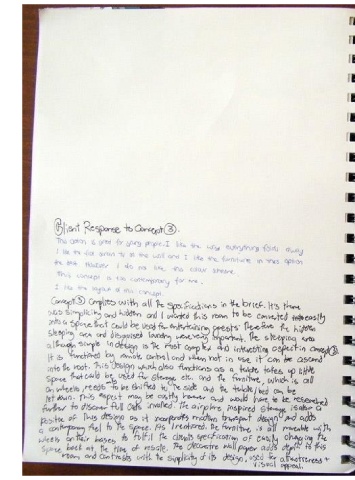 Client Response to Concept ③.
This option is great for young people. I like the way everything folds away
I like the
wall and I like the furniture in this option
the best. However I do not like this colour scheme.
This concept is too contemporary for me.
I like the layout of this concept.
Concept ③ complies with all the specifications in the brief. It's theme
was simplicity and hidden and I wanted this room to be converted easily
into a space that could be used for entertaining guests. Therefore the hidden
sleeping area and disguised laundry were very important. The sleeping area
although simple in design is the most complex and interesting aspect in concept ③.
It is functioned by remote control and when not in use it can be ascend
into the roof. This design which also functions as a table takes up little
space that could be used for storage etc. and the furniture, which is all
on wheels needs to be shifted to the side and the table/bed can be
let down. This aspect may be costly however and would have to be researched
further to discover full costs involved. The airplane inspired storage is also a
positive of this design as it incorporates modern transport design and adds
contemporary feel to the space. As I mentioned the furniture is all moveable with
wheels on their bases to fulfil the clients specification of easily changing the
space back at the time of resale. The decorative wall paper adds depth to this
room and contrasts with the simplicity of its design, also for attractiveness +
visual appeal.